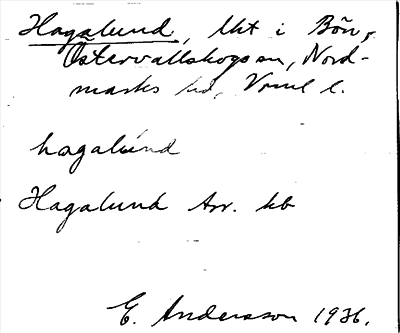 Hagalund, lht i Bön,
Östervallskogs sn, Nord-
marks hd, Vrml l.
hagalúnd
Hagalund Arr. kb
E. Andersson 1936.